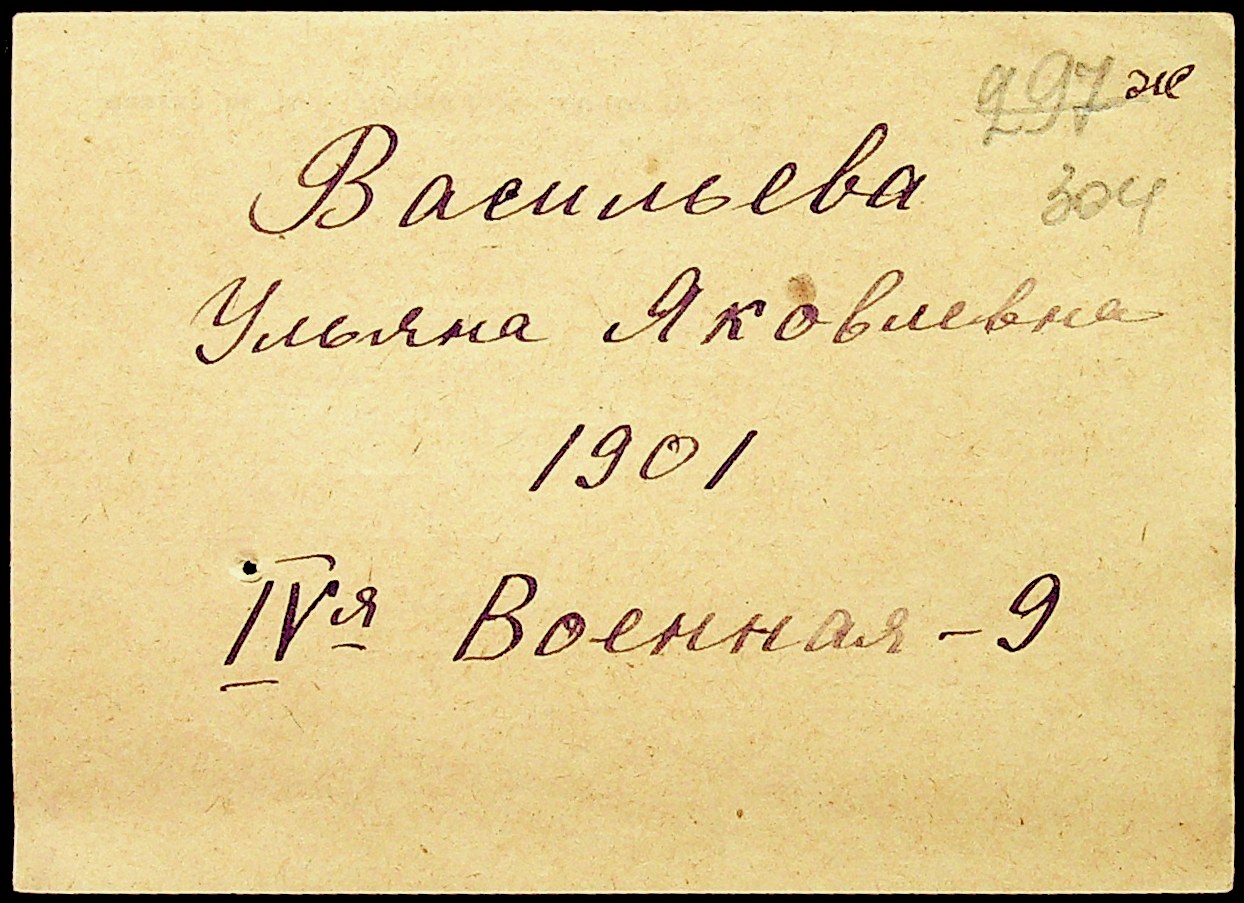 297 ж
Васильева
304
Ульяна Яковлевна
1901
IVя Военная - 9